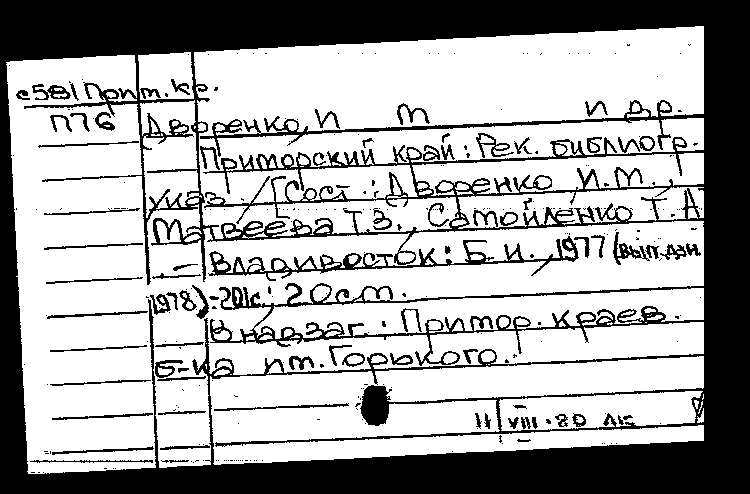 с581 Прим.кр.
П76 Дворенко, И М и др.
Приморский край: Рек. библиогр.
указ. / [Сост.: Дворенко И.М.,
Матвеева Т.З., Самойленко Т.А
. — Владивосток: Б.и., 1977 (вып.дан.
1978). - 201с.; 20см.
В надзаг.: Примор. краев.
б-ка им. Горького.
11/VIII-80